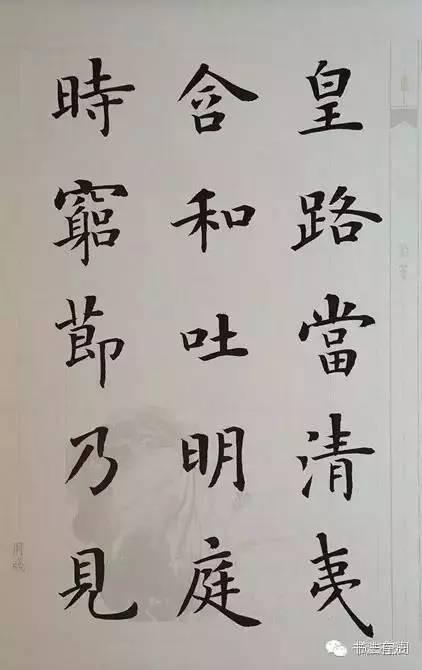 皇路當清夷
含和吐明庭
時窮節乃見
书法有润